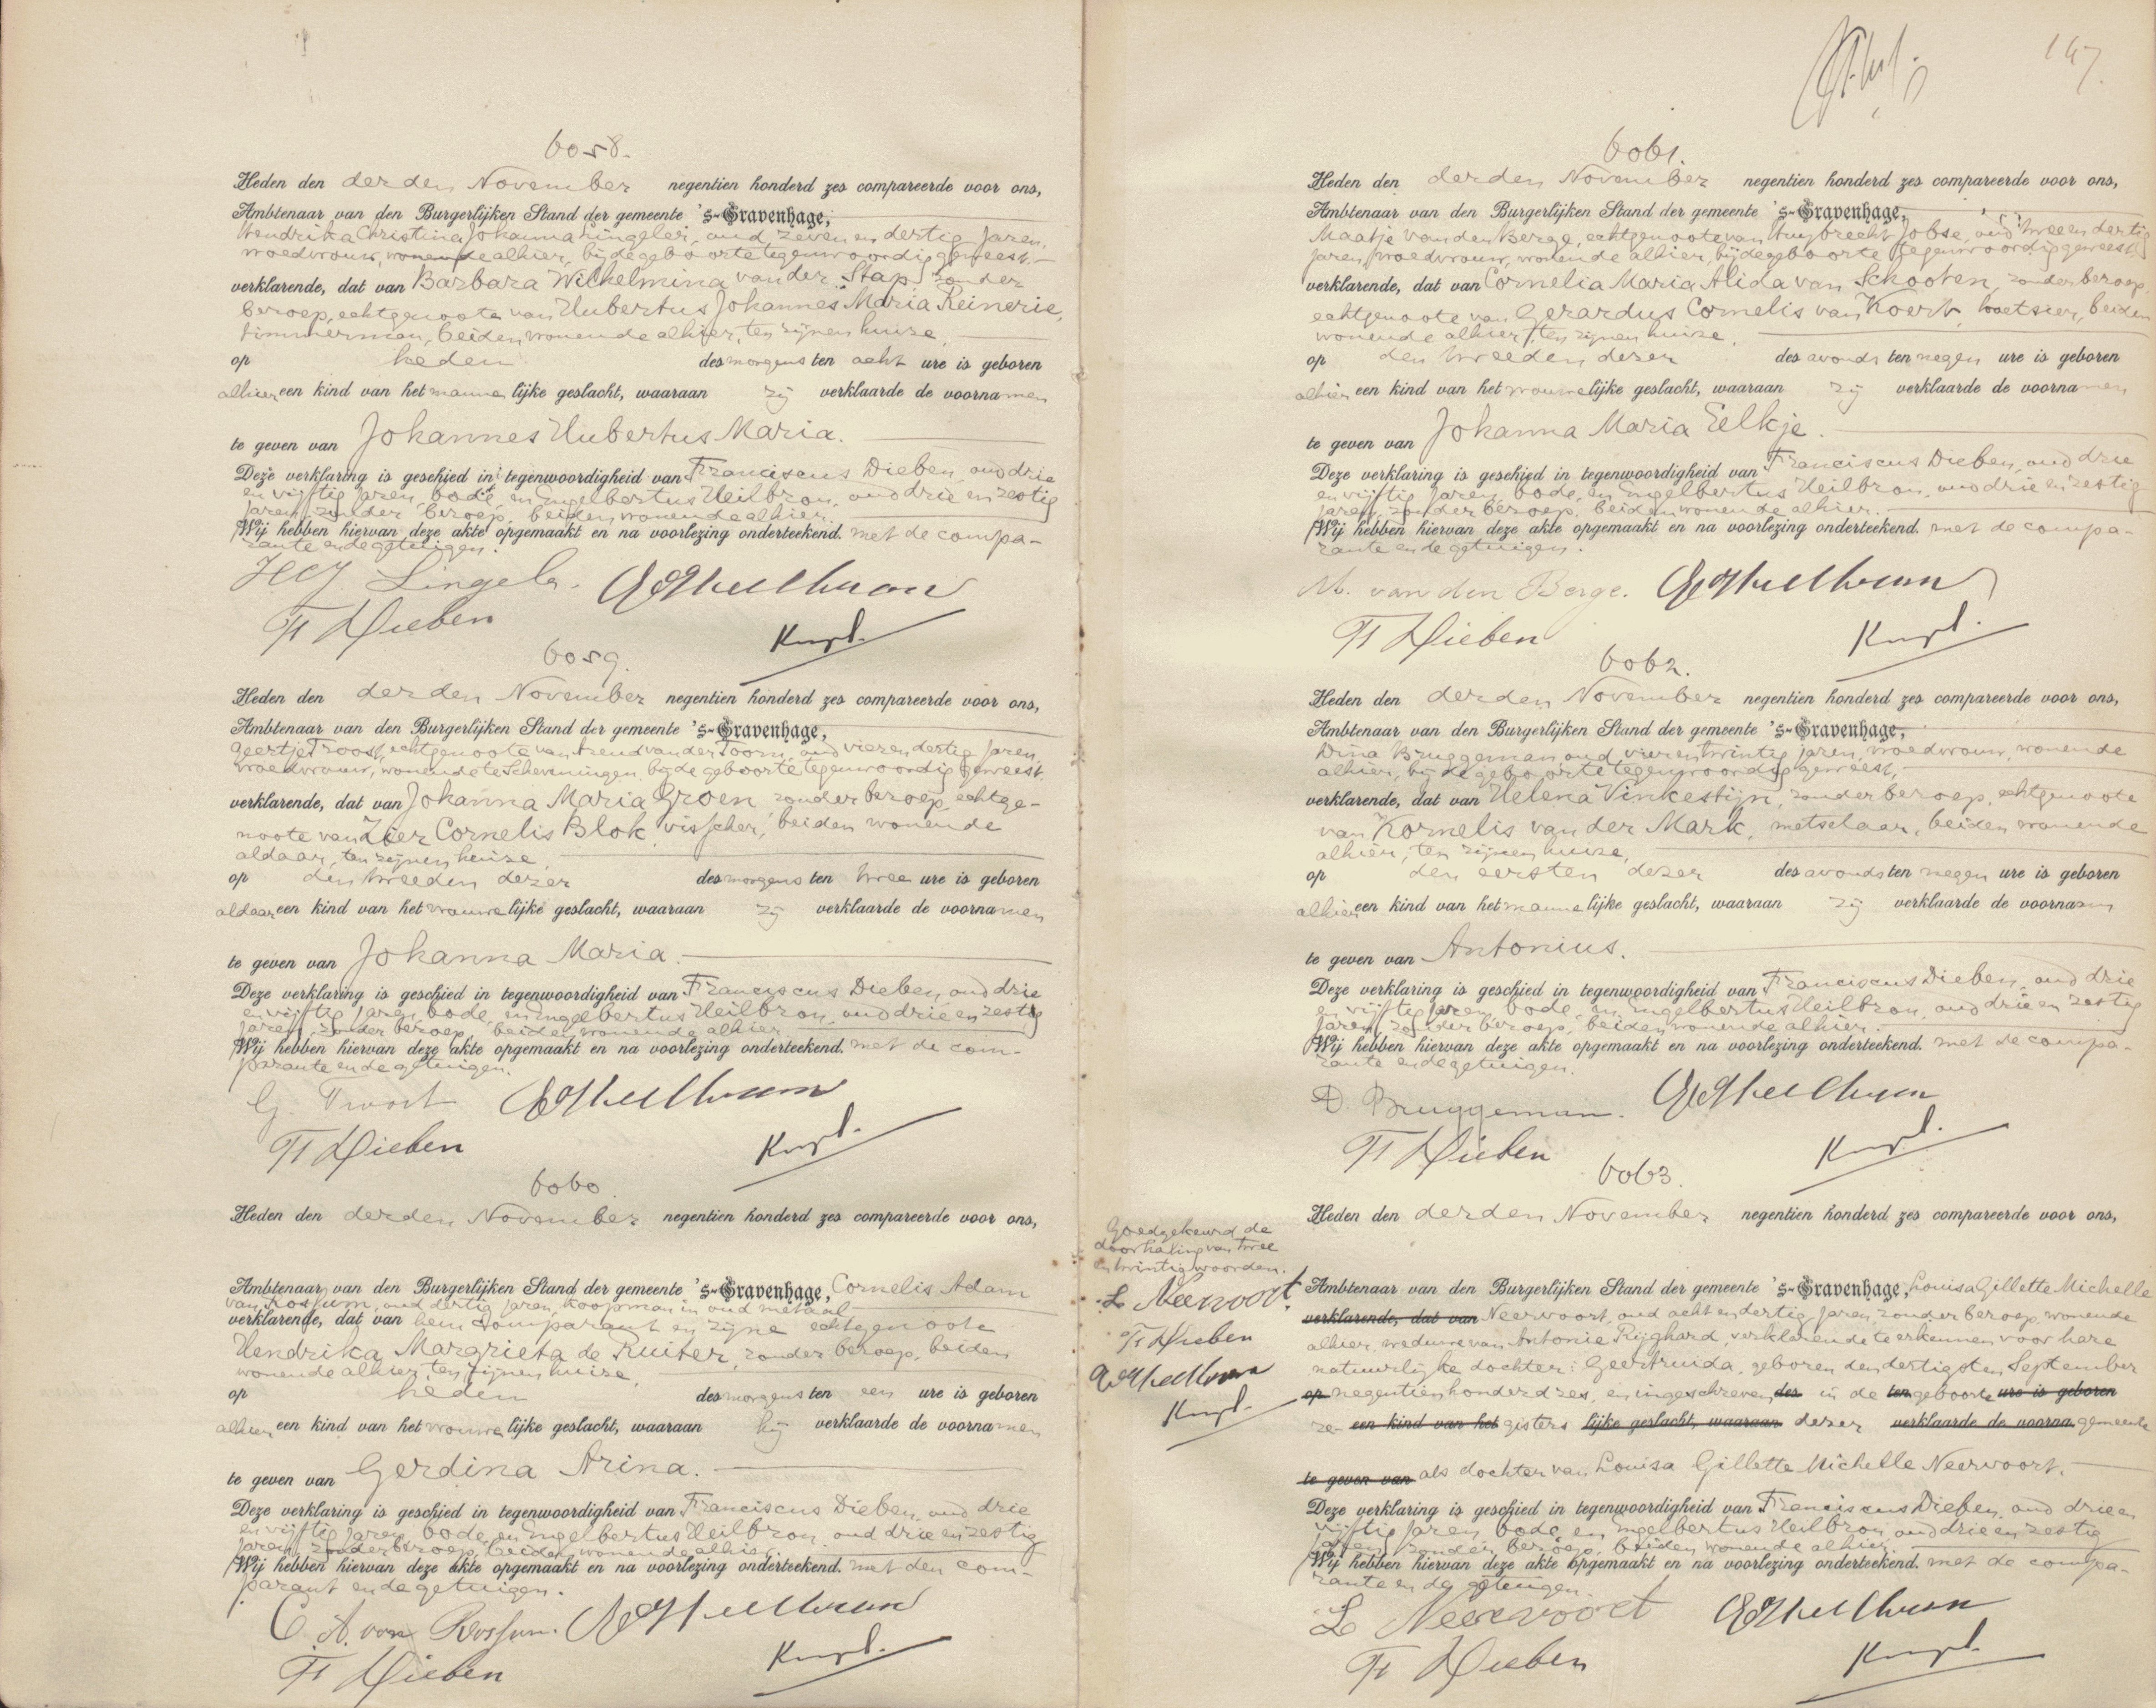 6058.
Heden den derden November negentien honderd zes compareerde voor ons,
Ambtenaar van den Burgerlijken Stand der gemeente 's-Gravenhage,
Hendrika Christina Johanna Lingeler, oud zeven en dertig jaren,
vroedvrouw, wonende alhier, bij de geboorte tegenwoordig geweest.
verklarende, dat van Barbara Wilhelmina van der Stap, zonder
beroep, echtgenoote van Hubertus Johannes Maria Reinerie,
timmerman, beiden wonende alhier, ten zijnen huize,
op heden des morgens ten acht ure is geboren
alhier een kind van het mannelijke geslacht, waaraan zij verklaarde de voornamen
te geven van Johannes Hubertus Maria.
Deze verklaring is geschied in tegenwoordigheid van Franciscus Dieben, oud drie
en vijftig jaren, bode, en Engelbertus Heilbron, oud drie en zestig
jaren, zonder beroep, beiden wonende alhier.
Wij hebben hiervan deze akte opgemaakt en na voorlezing onderteekend. met de compa-
rante en de getuigen.
HCJ Lingeler.
F Dieben
6059.
Heden den derden November negentien honderd zes compareerde voor ons,
Ambtenaar van den Burgerlijken Stand der gemeente 's-Gravenhage,
Geertje Troost, echtgenoote van Arend van der Toorn, oud vier en dertig jaren,
vroedvrouw, wonende te Scheveningen, bij de geboorte tegenwoordig geweest.
verklarende, dat van Johanna Maria Groen, zonder beroep, echtge-
noote van Zier Cornelis Blok, visscher, beiden wonende
aldaar, ten zijnen huize,
op den tweeden dezer des morgens ten twee ure is geboren
aldaar een kind van het vrouwelijke geslacht, waaraan zij verklaarde de voornamen
te geven van Johanna Maria.
Deze verklaring is geschied in tegenwoordigheid van Franciscus Dieben, oud drie
en vijftig jaren, bode, en Engelbertus Heilbron, oud drie en zestig
jaren, zonder beroep, beiden wonende alhier.
Wij hebben hiervan deze akte opgemaakt en na voorlezing onderteekend. met de com-
parante en de getuigen.
G. Troost
F Dieben
6060.
Heden den derden November negentien honderd zes compareerde voor ons,
Ambtenaar van den Burgerlijken Stand der gemeente 's-Gravenhage, Cornelis Adam
van Rossum, oud dertig jaren, koopman in oud metaal
verklarende, dat van hem comparant en zijne echtgenoote
Hendrika Margrieta de Ruiter, zonder beroep, beiden
wonende alhier, ten zijnen huize,
op heden des morgens ten een ure is geboren
alhier een kind van het vrouwelijke geslacht, waaraan hij verklaarde de voornamen
te geven van Gerdina Arina.
Deze verklaring is geschied in tegenwoordigheid van Franciscus Dieben, oud drie
en vijftig jaren, bode, en Engelbertus Heilbron, oud drie en zestig
jaren, zonder beroep, beiden wonende alhier.
Wij hebben hiervan deze akte opgemaakt en na voorlezing onderteekend. met den com-
parant en de getuigen.
C. A. van Rossum.
F Dieben
147
6061.
Heden den derden November negentien honderd zes compareerde voor ons,
Ambtenaar van den Burgerlijken Stand der gemeente 's-Gravenhage,
Maatje van den Berge, echtgenoote van Huybrecht Jobse, oud twee en dertig
jaren, vroedvrouw, wonende alhier, bij de geboorte tegenwoordig geweest,
verklarende, dat van Cornelia Maria Alida van Schooten, zonder beroep,
echtgenoote van Gerardus Cornelis van Koert, koetsier, beiden
wonende alhier, ten zijnen huize,
op den tweeden dezer des avonds ten negen ure is geboren
alhier een kind van het vrouwelijke geslacht, waaraan zij verklaarde de voornamen
te geven van Johanna Maria Eelkje.
Deze verklaring is geschied in tegenwoordigheid van Franciscus Dieben, oud drie
en vijftig jaren, bode, en Engelbertus Heilbron, oud drie en zestig
jaren, zonder beroep, beiden wonende alhier.
Wij hebben hiervan deze akte opgemaakt en na voorlezing onderteekend. met de compa-
rante en de getuigen.
M. van den Berge.
F Dieben
6062.
Heden den derden November negentien honderd zes compareerde voor ons,
Ambtenaar van den Burgerlijken Stand der gemeente 's-Gravenhage,
Dina Bruggeman, oud vier en twintig jaren, vroedvrouw, wonende
alhier, bij de geboorte tegenwoordig geweest,
verklarende, dat van Helena Vinkestijn, zonder beroep, echtgenoote
van Kornelis van der Mark, metselaar, beiden wonende
alhier, ten zijnen huize,
op den eersten dezer des avonds ten negen ure is geboren
alhier een kind van het mannelijke geslacht, waaraan zij verklaarde de voornaam
te geven van Antonius.
Deze verklaring is geschied in tegenwoordigheid van Franciscus Dieben, oud drie
en vijftig jaren, bode, en Engelbertus Heilbron, oud drie en zestig
jaren, zonder beroep, beiden wonende alhier.
Wij hebben hiervan deze akte opgemaakt en na voorlezing onderteekend. met de compa-
rante en de getuigen.
D. Bruggeman.
F Dieben
6063.
Heden den derden November negentien honderd zes compareerde voor ons,
Goedgekeurd de
doorhaling van twee
en twintig woorden.
L Neervoort
F Dieben
Ambtenaar van den Burgerlijken Stand der gemeente 's-Gravenhage, Louisa Gillette Michelle
verklarende, dat van Neervoort, oud acht en dertig jaren, zonder beroep, wonende
alhier, weduwe van Antonie Rijghard, verklarende te erkennen voor hare
natuurlijke dochter: Geertruida, geboren den dertigsten September
op negentienhonderd zes, en ingeschreven des in de ten geboorte ure is geboren
re- een kind van het gisters lijke geslacht, waaraan dezer verklaarde de voorna gemeente
te geven van als dochter van Louisa Gillette Michelle Neervoort.
Deze verklaring is geschied in tegenwoordigheid van Franciscus Dieben, oud drie en
vijftig jaren, bode, en Engelbertus Heilbron, oud drie en zestig
jaren, zonder beroep, beiden wonende alhier.
Wij hebben hiervan deze akte opgemaakt en na voorlezing onderteekend. met de compa-
rante en de getuigen.
L Neervoort
F Dieben